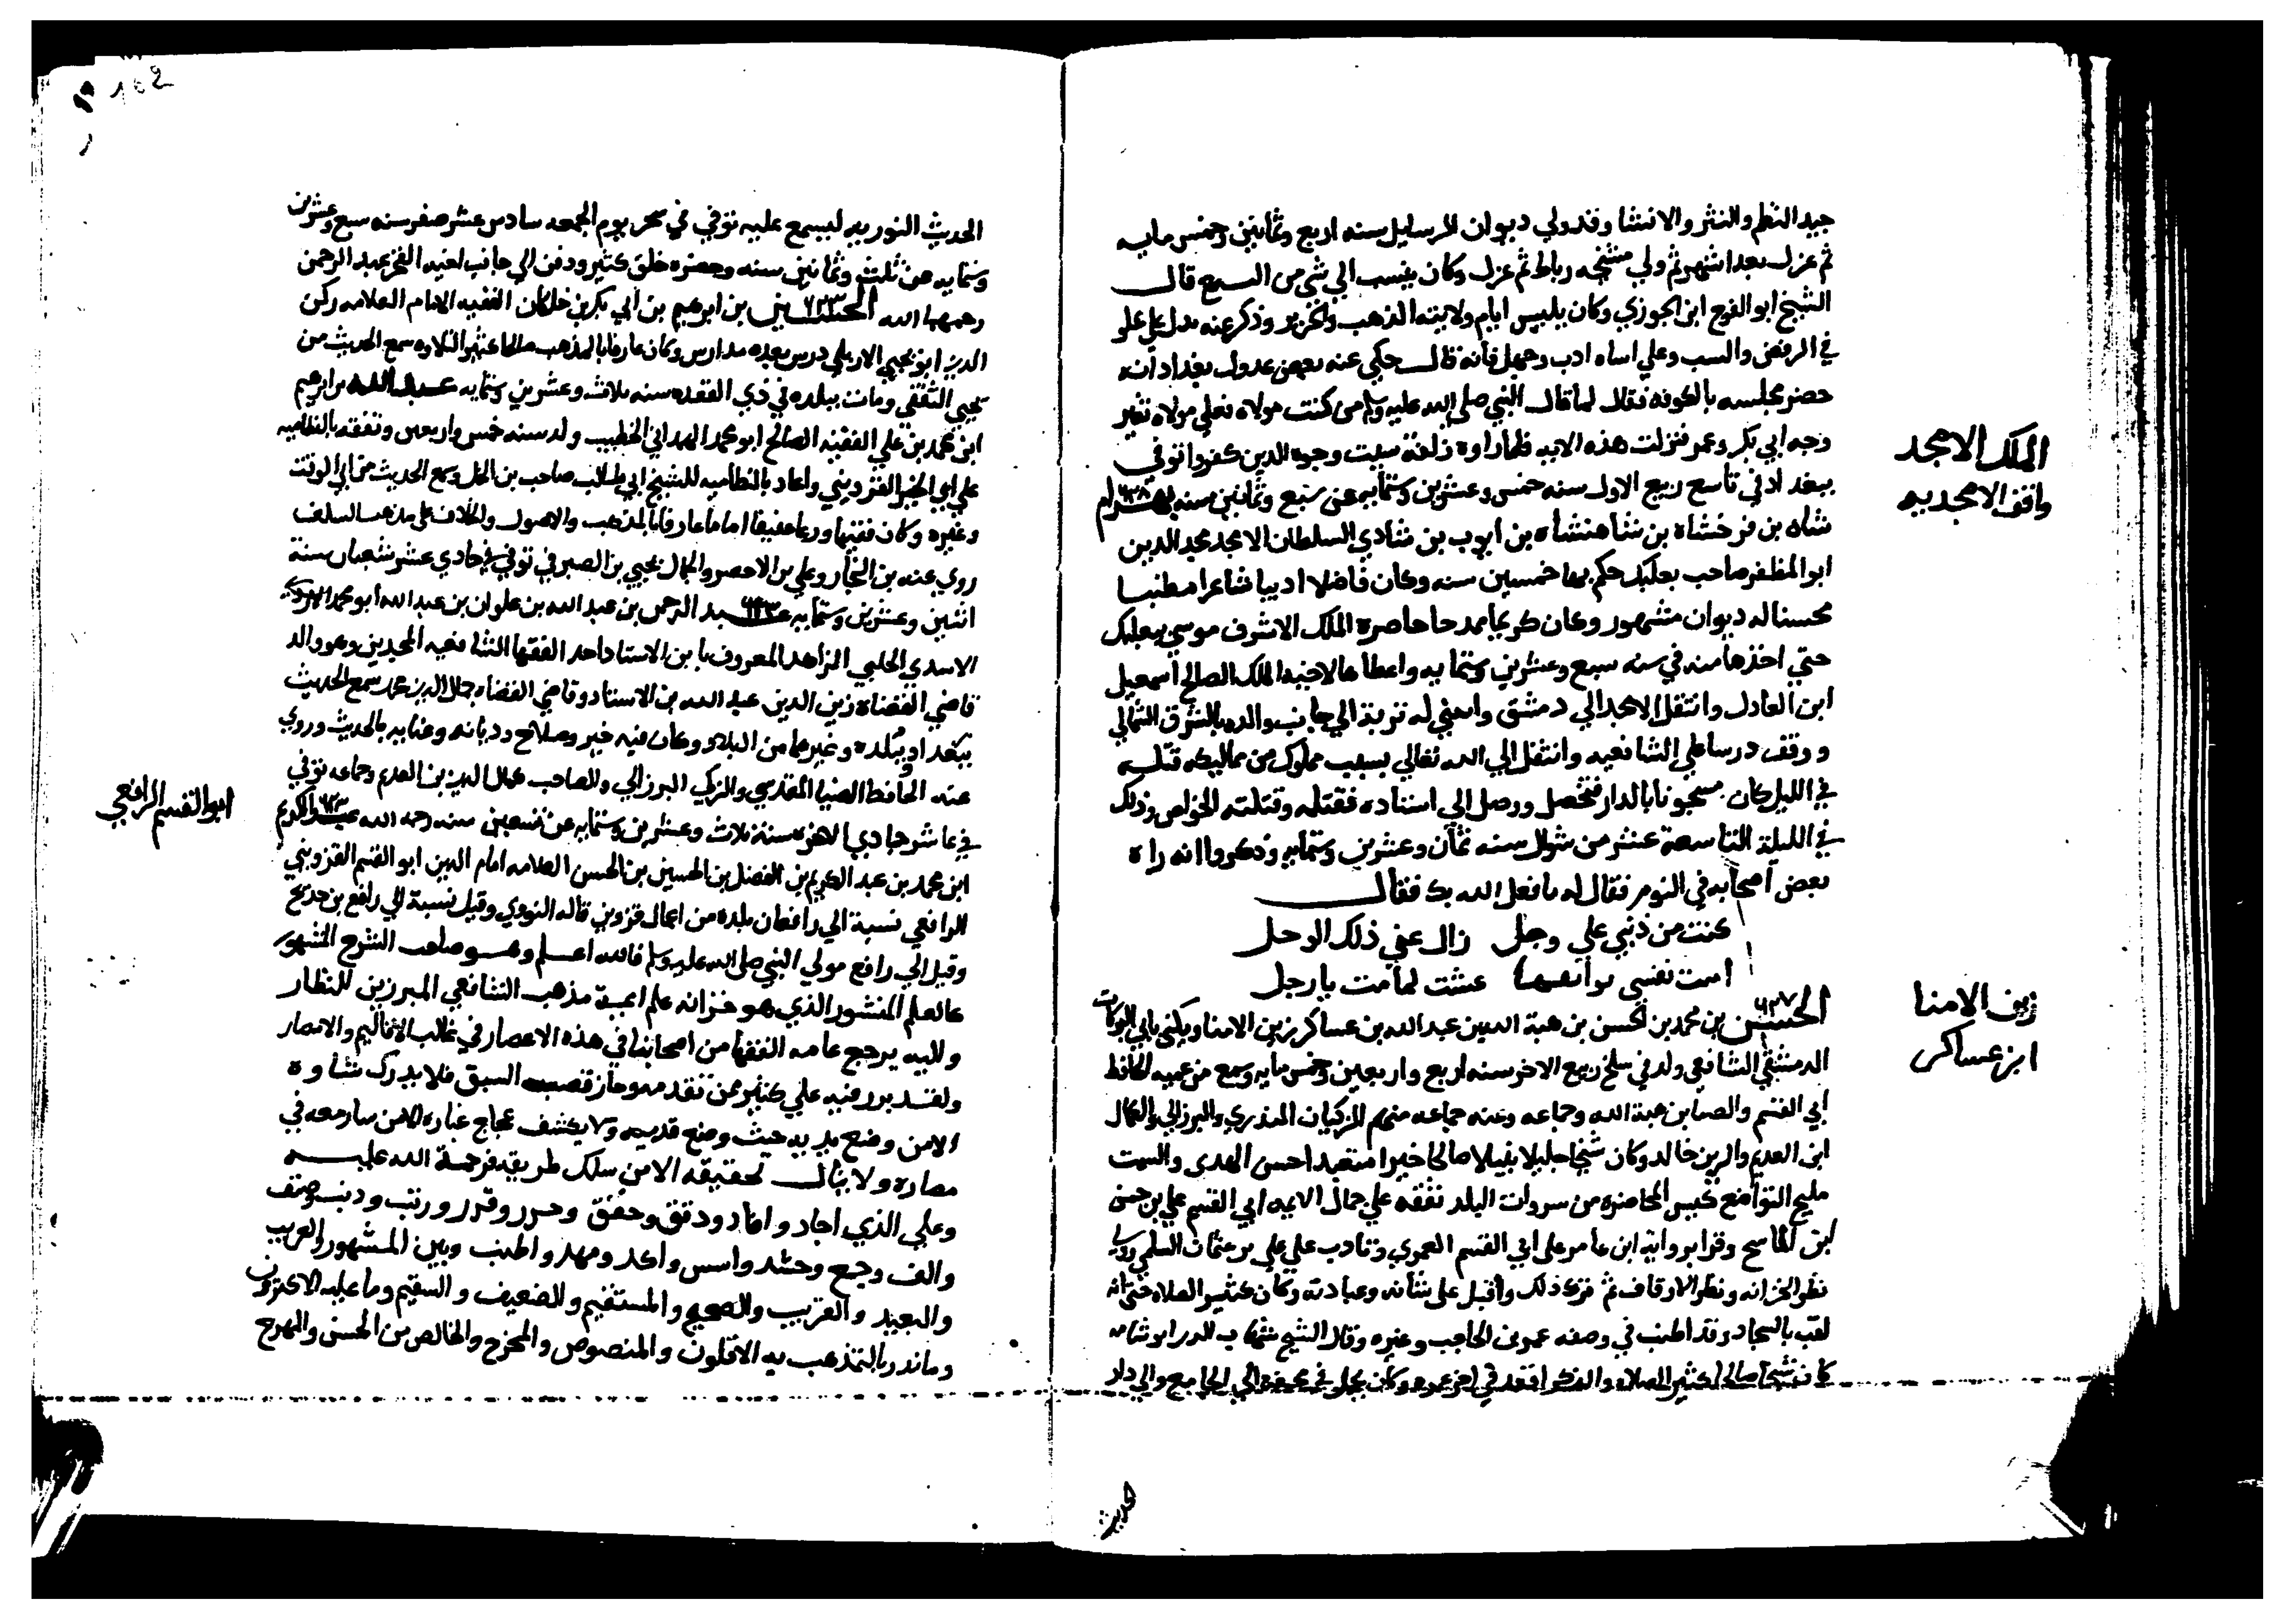 جيد النظم والنثر والانشا وقد ولي ديوان الرسايل سنه اربع وثمانين وخمس مايه
ثم عزل بعد اشهر ثم ولي مشيخه رباط ثم عزل وكان ينسب الي شي من التشيع قال
الشيخ ابو الفرج ابن الجوزي وكان يلبس ايام ولايته الذهب والحرير وذكر عنه ما يدل علي غلو
في الرفض والسب وعلي اساه ادب وجهل فانه قال حكي عنه بعض عدول بغداد انه
حضر مجلسه بالكوفه فقال لما قال النبي صلي الله عليه وسلم من كنت مولاه فعلي مولاه تغير
وجه ابي بكر وعمر فنزلت هذه الايه فلما راوه زلفة سيت وجوه الدين كفروا توفي
ببغداد في تاسع ربيع الاول سنه خمس وعشرين وستمايه عن سبع وثمانين سنه بهرام
شاه بن فرخشاه بن شاهنشاه بن ايوب بن شادي السلطان الامجد مجد الدين
ابو المظفر صاحب بعلبك حكم بها خمسين سنه وكان فاضلا اديبا شاعرا مطنبا
محسنا له ديوان مشهور وكان كريما ممدحا حاصره الملك الاشرف موسي ببعلبك
حتي اخذها منه في سنه سبع وعشرين وستمايه واعطاها لاخيه الملك الصالح اسمعيل
ابن العادل وانتقل الامجد الي دمشق وابتني له تربة الي جانب والده بالشرق الشمالي
ووقف درسا علي الشافعيه وانتقل الي الله تعالي بسبب مملوك من مماليكه قتله
في الليل كان مسجونا بالدار فتحصل ووصل الي استاده فقتله وقتلته الخواص وذلك
في الليلة التاسعة عشر من شوال سنه ثمان وعشرين وستمايه وذكروا انه راه
بعض اصحابه في النوم فقال له ما فعل الله بك فقال
كنت من ذنبي علي وجل زال عني ذلك الوجل
امنت نفسي بوايقها عشت لما مت يا رجل
الحسن بن محمد بن الحسن بن هبة الله بن عبد الله بن عساكر زين الامنا ويكني بابي البركات
الدمشقي الشافعي ولد في سلخ ربيع الاخر سنه اربع واربعين وخمس مايه وسمع من عميه الحافظ
ابي القسم والصاين هبة الله وجماعه وعنه جماعه منهم الزكيان المنذري والبرزالي والكمال
ابن العديم والزين خالد وكان شيخا جليلا نبيلا صالحا خيرا متعبدا حسن الهدي والسمت
مليح التواضع كيس المحاضره من سروات البلد تفقه علي جمال الايمه ابي القسم علي بن حسن
ابن الماسح وقرا برواية ابن عامر علي ابي القسم العمري وتادب علي علي بن عثمان السلمي وولي
نظر الخزانه ونظر الاوقاف ثم ترك ذلك واقبل علي شانه وعبادته وكان كثير الصلاه حتي انه
لقب بالسجاد وقد اطنب في وصفه عمر بن الحاجب وغيره وقال الشيخ شهاب الدين ابو شامه
كان شيخا صالحا كثير الصلاه والذكر اقعد في اخر عمره وكان يحمل في محفة الي الجامع والي دار
الحديث
الملك الامجد
واقف الامجديه
زين الامنا
ابن عساكر
الحديث النوريه ليسمع عليه توفي في سحر يوم الجمعه سادس عشر صفر سنه سبع وعشرين
وستمايه عن ثلث وثمانين سنه وحضره خلق كثير ودفن الي جانب اخيه الفخر عبد الرحمن
رحمهما الله الحسين بن ابرهيم بن ابي بكر بن خلكان الفقيه الامام العلامه ركن
الدين ابو يحيي الاربلي درس بعده مدارس وكان عارفا بالمذهب صالحا كثير التلاوه سمع الحديث من
يحيي الثقفي ومات ببلده في ذي القعده سنه ثلاث وعشرين وستمايه عبد الله بن ابرهيم
ابن محمد بن علي الفقيه الصالح ابو محمد الهمداني الخطيب ولد سنه خمس واربعين وتفقه بالنظاميه
علي ابي الخير القزويني واعاد بالنظاميه للشيخ ابي طالب صاحب بن الخل وسمع الحديث من ابي الوقت
وغيره وكان فقيها ورعا عفيفا اماما عارفا بالمذهب والاصول والخلاف علي مذهب السلف
روي عنه بن النجار وعلي بن الاخضر والجمال يحيي بن الصيرفي توفي في حادي عشر شعبان سنة
اثنين وعشرين وستمايه عبد الرحمن بن عبد الله بن علوان بن عبد الله ابو محمد
الاسدي الحلبي الزاهد المعروف بابن الاستاد احد الفقها الشافعيه المحدثين وهو والد
قاضي القضاه زين الدين عبد الله بن الاستاد وقاضي القضاه جمال الدين محمد سمع الحديث
ببغداد وببلده وغيرهما من البلاد وكان فيه خير وصلاح وديانه وعنايه بالحديث وروي
عنه الحافظ الضيا المقدسي والزكي البرزالي والصاحب كمال الدين بن العديم وجماعه توفي
في عاشر جمادي الاخره سنة ثلاث وعشرين وستمايه عن تسعين سنه رحمه الله عبد الكريم
ابن محمد بن عبد الكريم بن الفضل بن الحسين بن الحسن العلامه امام الدين ابو القسم القزويني
الرافعي نسبة الي رافعان بلده من اعمال قزوين قاله النووي وقيل نسبة الي رافع بن خديج
وقيل الي رافع مولي النبي صلي الله عليه وسلم فالله اعلم وهو صاحب الشرح المشهور
كالعلم المنشور الذي هو خزانه علم ايمة مذهب الشافعي المبرزين للنظار
واليه يرجع عامه الفقها من اصحابنا في هذه الاعصار في غالب الاقاليم والامصار
ولقد برز فيه علي كثير ممن تقدمه وحاز قصب السبق فلا يدرك شاوه
الا من وضع يديه حيث وضع قدميه ولا يكشف عجاج غباره الا من سار معه في
مضاره ولا ينال تحقيقه الا من سلك طريقه فرحمة الله عليه
وعلي الذي اجاد وافاد ودقق وحقق وحرر وقرر ورتب وصنف
والف وجمع وحشد واسس واكد ومهد واطنب وبين المشهور والغريب
والبعيد والقريب والصحيح والمستقيم والضعيف والسقيم وما عليه الاكثرون
وما ندر بالتمذهب به الاقلون والمنصوص والمخرج والخالص من الحسن والبهرج
ابو القسم الرافعي